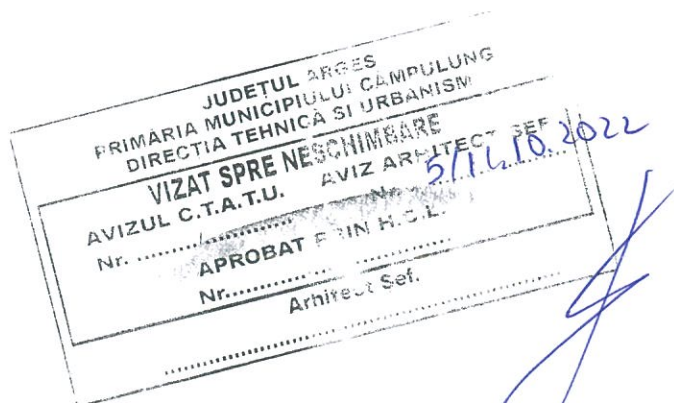 JUDEȚUL ARGES
PRIMĂRIA MUNICIPIULUI CÂMPULUNG
DIRECȚIA TEHNICĂ SI URBANISM
VIZAT SPRE NESCHIMBARE
AVIZUL C.T.A.T.U. AVIZ ARHITECT SEF
Nr. ........../.............. Nr. 5/11.10.2022
APROBAT PRIN H.C.L.
Nr...................................
Arhitect Sef.
............................................................